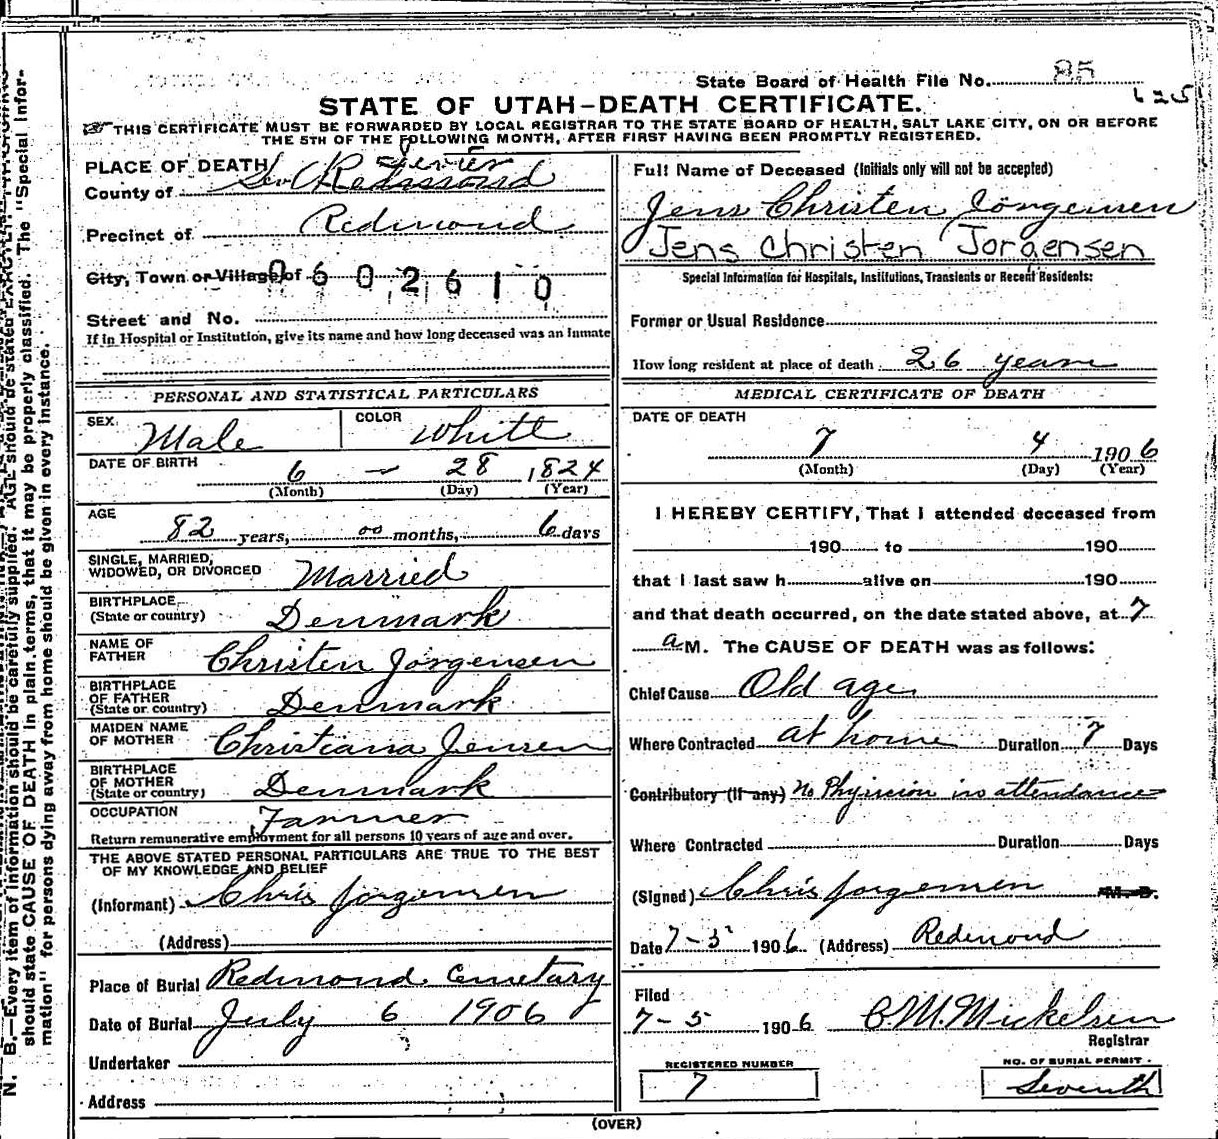 State Board of Health File No. 85
625
STATE OF UTAH-DEATH CERTIFICATE.
THIS CERTIFICATE MUST BE FORWARDED BY LOCAL REGISTRAR TO THE STATE BOARD OF HEALTH, SALT LAKE CITY, ON OR BEFORE
THE 5TH OF THE FOLLOWING MONTH, AFTER FIRST HAVING BEEN PROMPTLY REGISTERED.
PLACE OF DEATH
Sevier
County of
Precinct of Redmond
City, Town or Village of 0602610
Street and No.
If in Hospital or Institution, give its name and how long deceased was an inmate
PERSONAL AND STATISTICAL PARTICULARS
SEX Male COLOR White
DATE OF BIRTH
6 - 28 1824
(Month) (Day) (Year)
AGE
82 years, 00 months, 6 days
SINGLE, MARRIED,
WIDOWED, OR DIVORCED Married
BIRTHPLACE
(State or country) Denmark
NAME OF
FATHER Christen Jorgensen
BIRTHPLACE
OF FATHER
(State or country) Denmark
MAIDEN NAME
OF MOTHER Christiana Jensen
BIRTHPLACE
OF MOTHER
(State or country) Denmark
OCCUPATION Farmer
Return remunerative employment for all persons 10 years of age and over.
THE ABOVE STATED PERSONAL PARTICULARS ARE TRUE TO THE BEST
OF MY KNOWLEDGE AND BELIEF
(Informant) Chris Jorgensen
(Address)
Place of Burial Redmond Cemetary
Date of Burial July 6 1906
Undertaker
Address
Full Name of Deceased (Initials only will not be accepted)
Jens Christen Jorgensen
Jens Christen Jorgensen
Special Information for Hospitals, Institutions, Transients or Recent Residents:
Former or Usual Residence
How long resident at place of death 26 years
MEDICAL CERTIFICATE OF DEATH
DATE OF DEATH
7 4 1906
(Month) (Day) (Year)
I HEREBY CERTIFY, That I attended deceased from
190 to 190
that I last saw h alive on 190
and that death occurred, on the date stated above, at 7
a M. The CAUSE OF DEATH was as follows:
Chief Cause Old age
Where Contracted at home Duration 7 Days
Contributory (if any) No Physician in attendance
Where Contracted Duration Days
(Signed) Chris Jorgensen M. D.
Date 7-5 1906 (Address) Redmond
Filed
7-5 1906 C. M. Mickelsen
Registrar
REGISTERED NUMBER
7
NO. OF BURIAL PERMIT
Seventh
(OVER)
N. B.—Every item of information should be carefully supplied. AGE should be stated EXACTLY.
should state CAUSE OF DEATH in plain terms, that it may be properly classified. The "Special Infor-
mation" for persons dying away from home should be given in every instance.